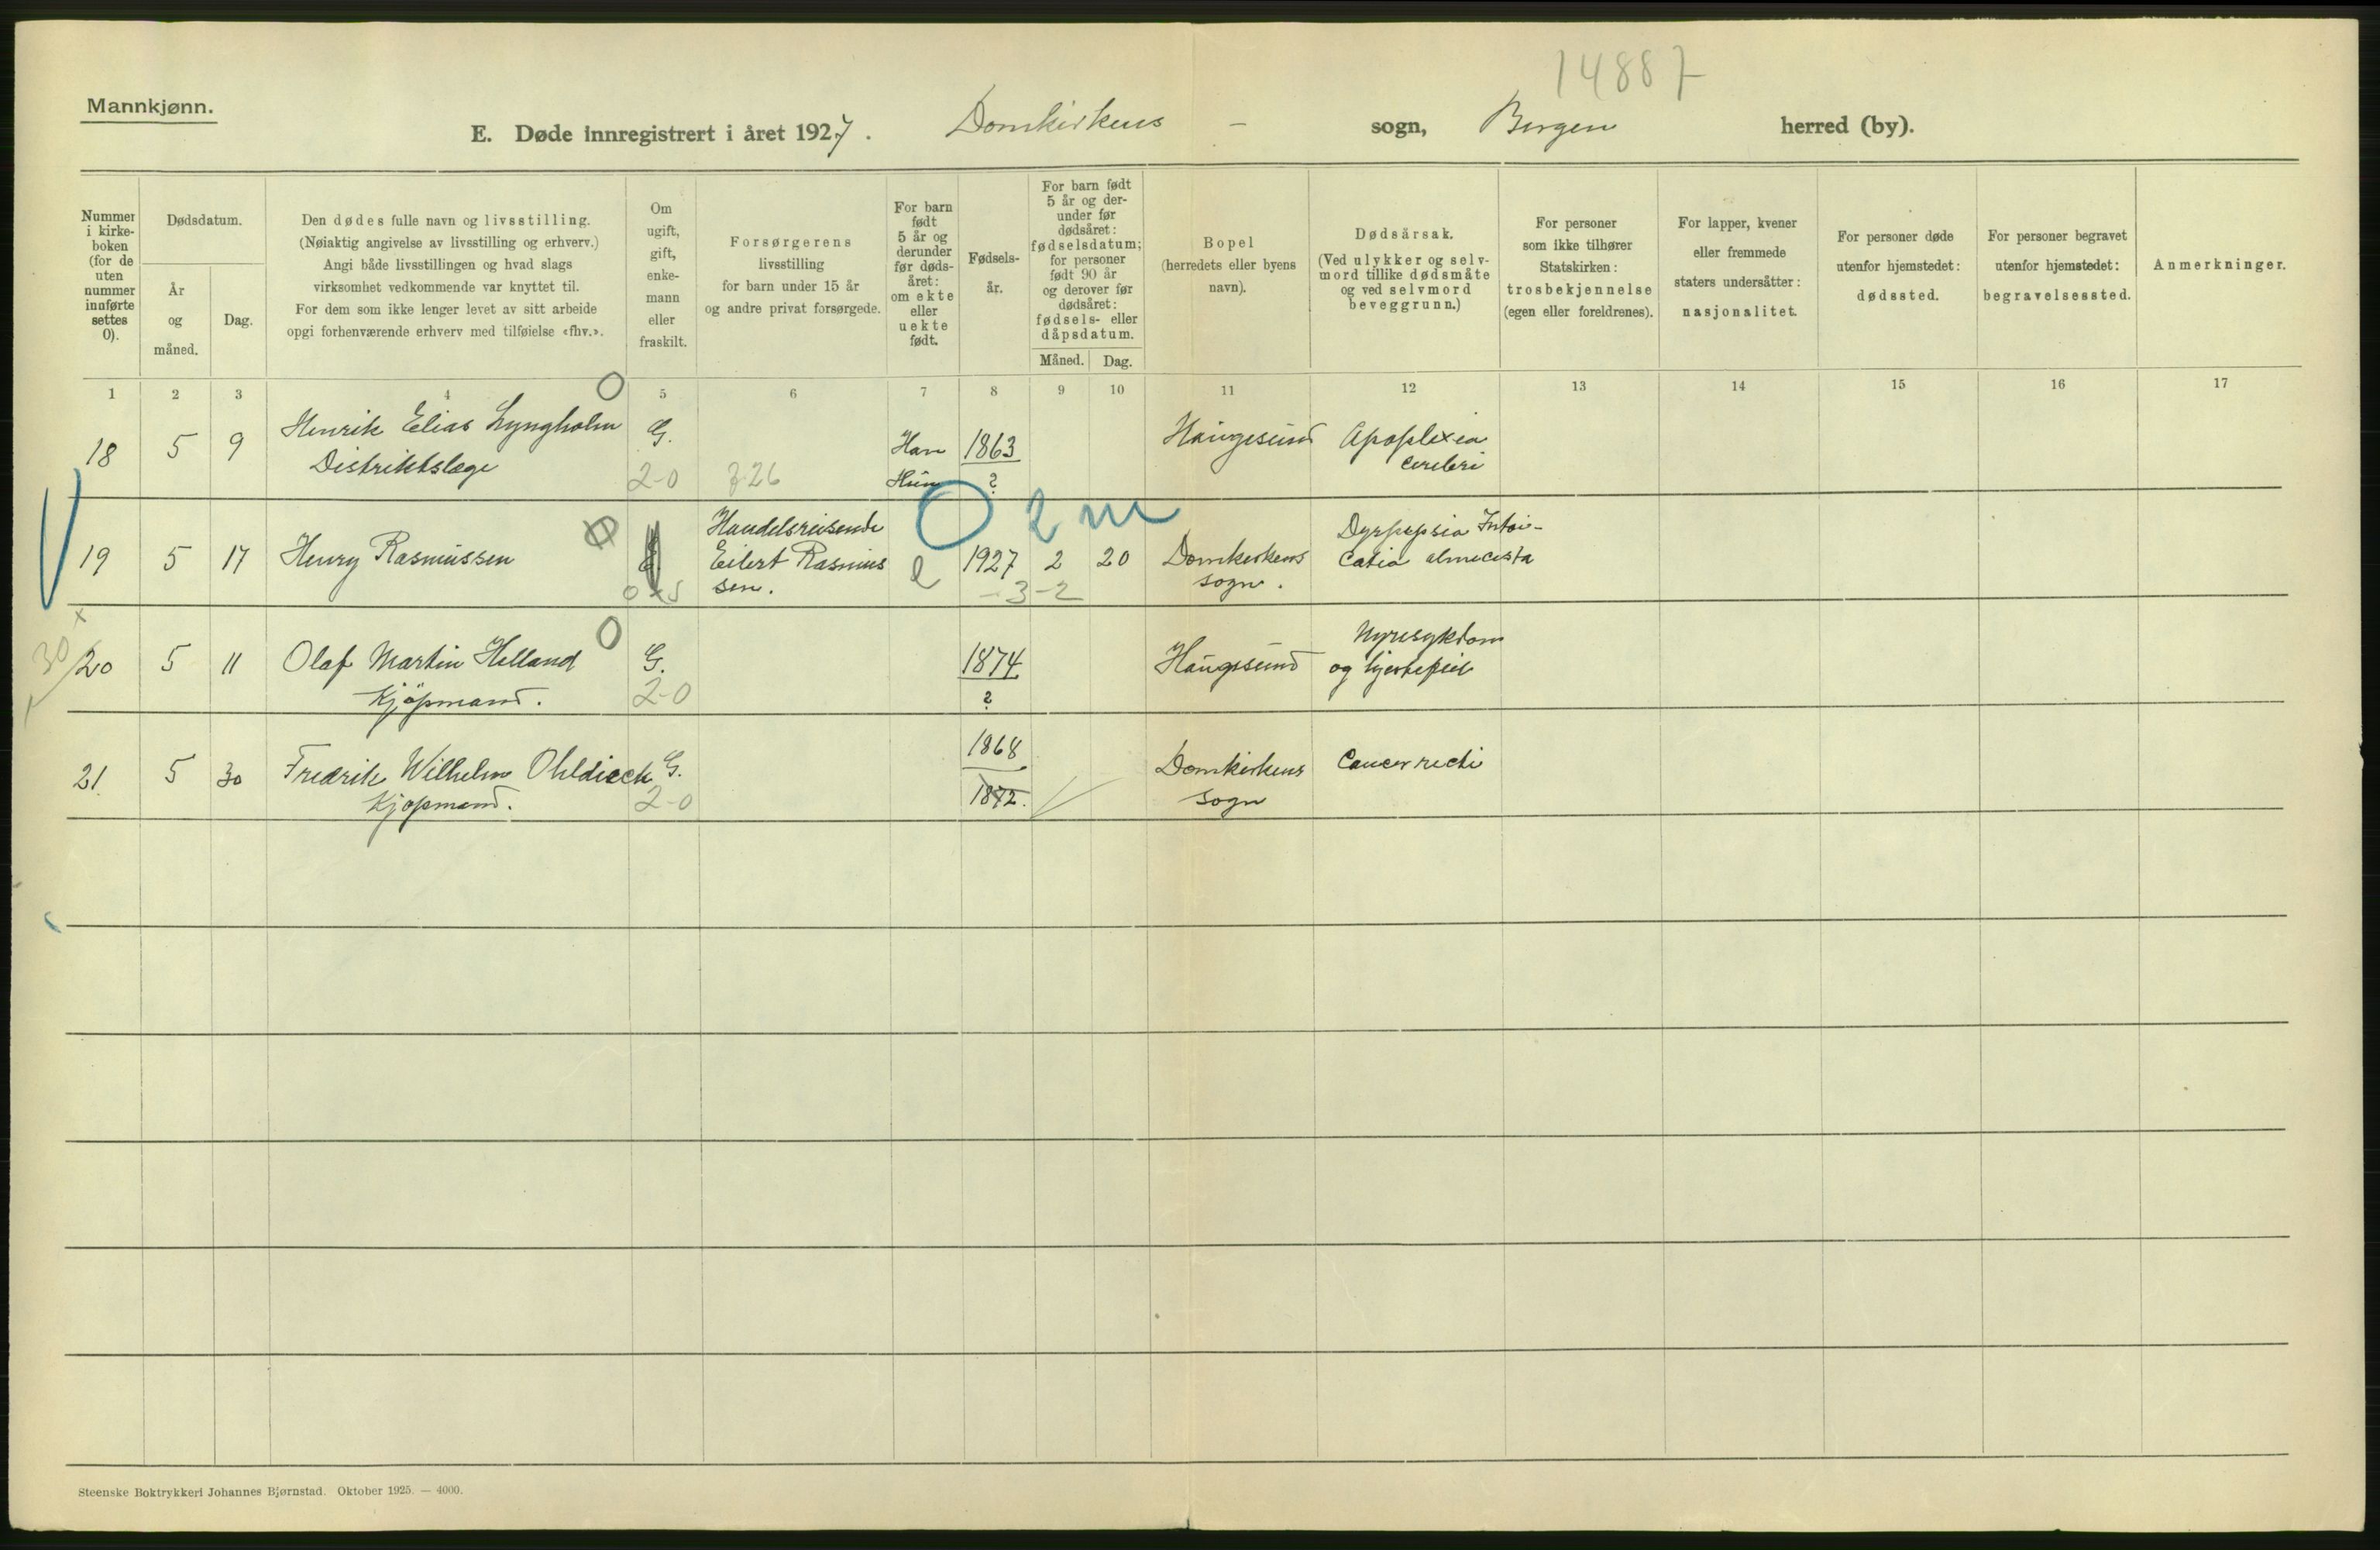 14887
Mannkjønn.
E. Døde innregistrert i året 1927. Domkirkens - sogn, Bergen herred (by).
Nummer i kirke-boken (for de uten nummer innførte settes 0).
Dødsdatum.
År og måned.
Dag.
Den dødes fulle navn og livsstilling.
(Nøiaktig angivelse av livsstilling og erhverv.)
Angi både livsstillingen og hvad slags
virksomhet vedkommende var knyttet til.
For dem som ikke lenger levet av sitt arbeide
opgi forhenværende erhverv med tilføielse «fhv.».
Om ugift, gift, enke-mann eller fraskilt.
Forsørgerens
livsstilling
for barn under 15 år
og andre privat forsørgede.
For barn født 5 år og derunder før døds-året: om ekte eller uekte født.
Fødsels-år.
For barn født 5 år og der-under før dødsåret: fødselsdatum; for personer født 90 år og derover før dødsåret: fødsels- eller dåpsdatum.
Måned. Dag.
Bopel
(herredets eller byens
navn).
Dødsårsak.
(Ved ulykker og selv-
mord tillike dødsmåte
og ved selvmord
beveggrunn.)
For personer
som ikke tilhører
Statskirken:
trosbekjennelse
(egen eller foreldrenes).
For lapper, kvener
eller fremmede
staters undersåtter:
nasjonalitet.
For personer døde
utenfor hjemstedet:
dødssted.
For personer begravet
utenfor hjemstedet:
begravelsessted.
Anmerkninger.
1 2 3 4 5 6 7 8 9 10 11 12 13 14 15 16 17
18 5 9 Henrik Elias Lyngholm G. Han 1863 Haugesund Apoplexia
Distriktslæge 2-0 Hun ? cerebri
2 m
Handelsreisende Dyspepsia Intoi-
19 5 17 Henry Rasmussen Eilert Rasmus e 1927 2 20 Domkirkens catio
sen. -3-2 sogn.
30
20 5 11 Olaf Martin Helland G. 1874 Haugesund Nyresykdom
Kjøpmand. 2-0 ? og hjertefeil
21 5 30 Fredrik Wilhelm Ohldieck G. 1868 Domkirkens Cancer recti
Kjøpmand. 2-0 1872. sogn
Steenske Boktrykkeri Johannes Bjørnstad. Oktober 1925. — 4000.